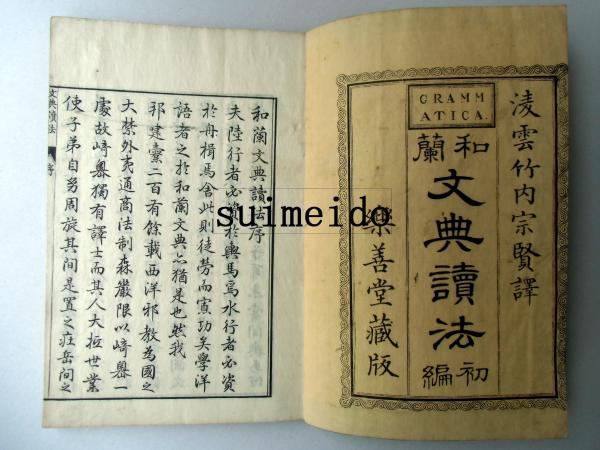 GRAMM
ATICA.
淩雲竹内宗賢譯
和蘭
文典讀法
初編
樂善堂藏版
和蘭文典讀法序
夫陸行者必資於輿馬爲水行者必資
於舟楫焉舍此則徒勞而寡功矣學洋
語者之於和蘭文典亦猶是也然我
邦建櫜二百有餘載西洋邪教為國之
大禁外夷通商法制森嚴限以崎嶴一
處故崎嶴獨有譯士而其人大抵世業
使子弟自幼周旋其間是置之莊岳間之
文典讀法
序
suimeido